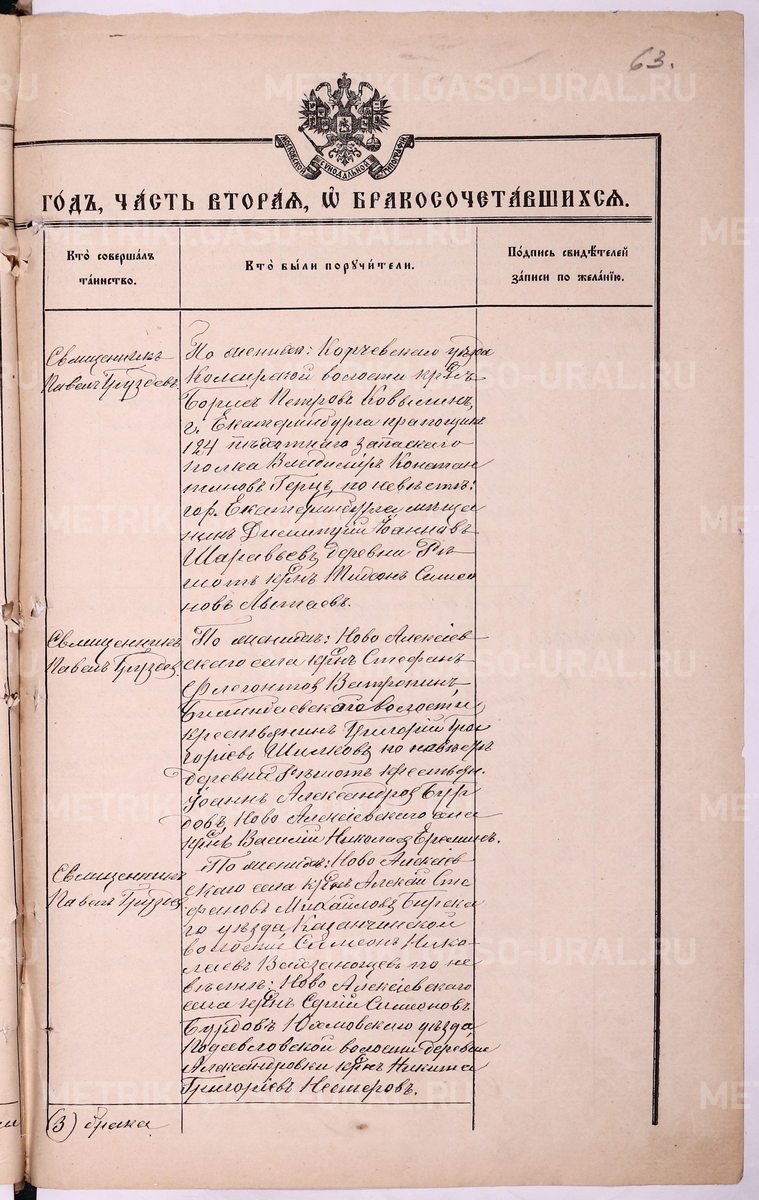 63.
МОСКОВСКОЙ СѴНОДАЛЬНОЙ ТИПОГРАФІИ
ГО́ДЪ, ЧА́СТЬ ВТОРА́Ѧ, Ѡ҆ БРАКОСОЧЕТА́ВШИХСѦ.
Кто̀ соверша́лъ
та́инство.
Кто̀ бы́ли порꙋчи́тели.
По́дпись свидѣ́телей
за́писи по жела́нію.
Священникъ
Павелъ Груздевъ.
По женихѣ: Корчевскаго уѣзда
волости кр-нъ
Борисъ Петровъ Ковылинъ,
г. Екатеринбурга прапорщикъ
124 пѣхотнаго запаснаго
полка Владиміръ Констан
тиновъ Герцъ, по невѣстѣ:
гор. Екатеринбурга мѣща
нинъ Димитрій Іоанновъ
деревни Рѣ
шотъ кр-нъ Симео
новъ
Священникъ
Павелъ Груздевъ
По женихѣ: Ново Алексѣев
скаго села кр-нъ Стефанъ
Флегонтовъ
Билимбаевской волости,
крестьянинъ Григорій Гри
горіевъ Шилковъ, по невѣстѣ
деревни Рѣшотъ крестьян.
Іоаннъ Александровъ Бур
довъ, Ново Алексѣевскаго села
кр-нъ Василій Николаевъ Ерешинъ.
Священникъ
Павелъ Груздевъ
По женихѣ: Ново Алексѣев
скаго села кр-нъ Алексѣй Сте
фановъ Михайловъ, Бирска
го уѣзда Казанчинской
волости Симеонъ Нико
лаевъ по не
вѣстѣ: Ново Алексѣевскаго
села кр-нъ Сергій Симеоновъ
Бурдовъ, уѣзда,
волости деревни
Александровки кр-нъ Никита
Григоріевъ Нестеровъ.
(3) брака
METRIKI.GASO-URAL.RU